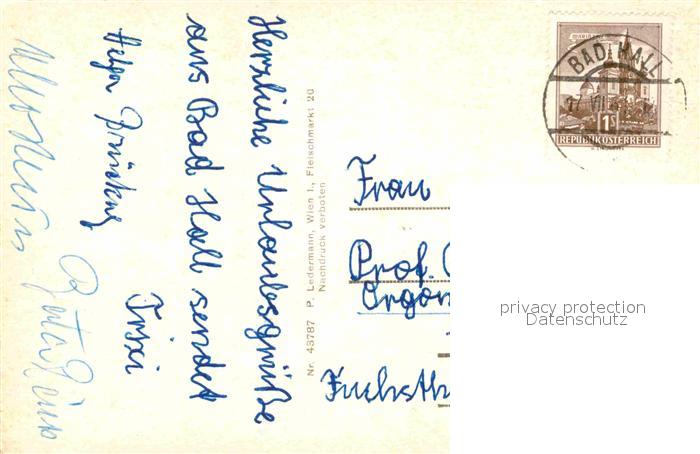 Herzliche Urlaubsgrüße
aus Bad Hall sendet
Trixi
Helga
Nr. 43787 P. Ledermann, Wien I., Fleischmarkt 20
Nachdruck verboten
BAD HALL
17. VII
1 S
REPUBLIK ÖSTERREICH
Frau
Prof.
Fuchsth
privacy protection
Datenschutz